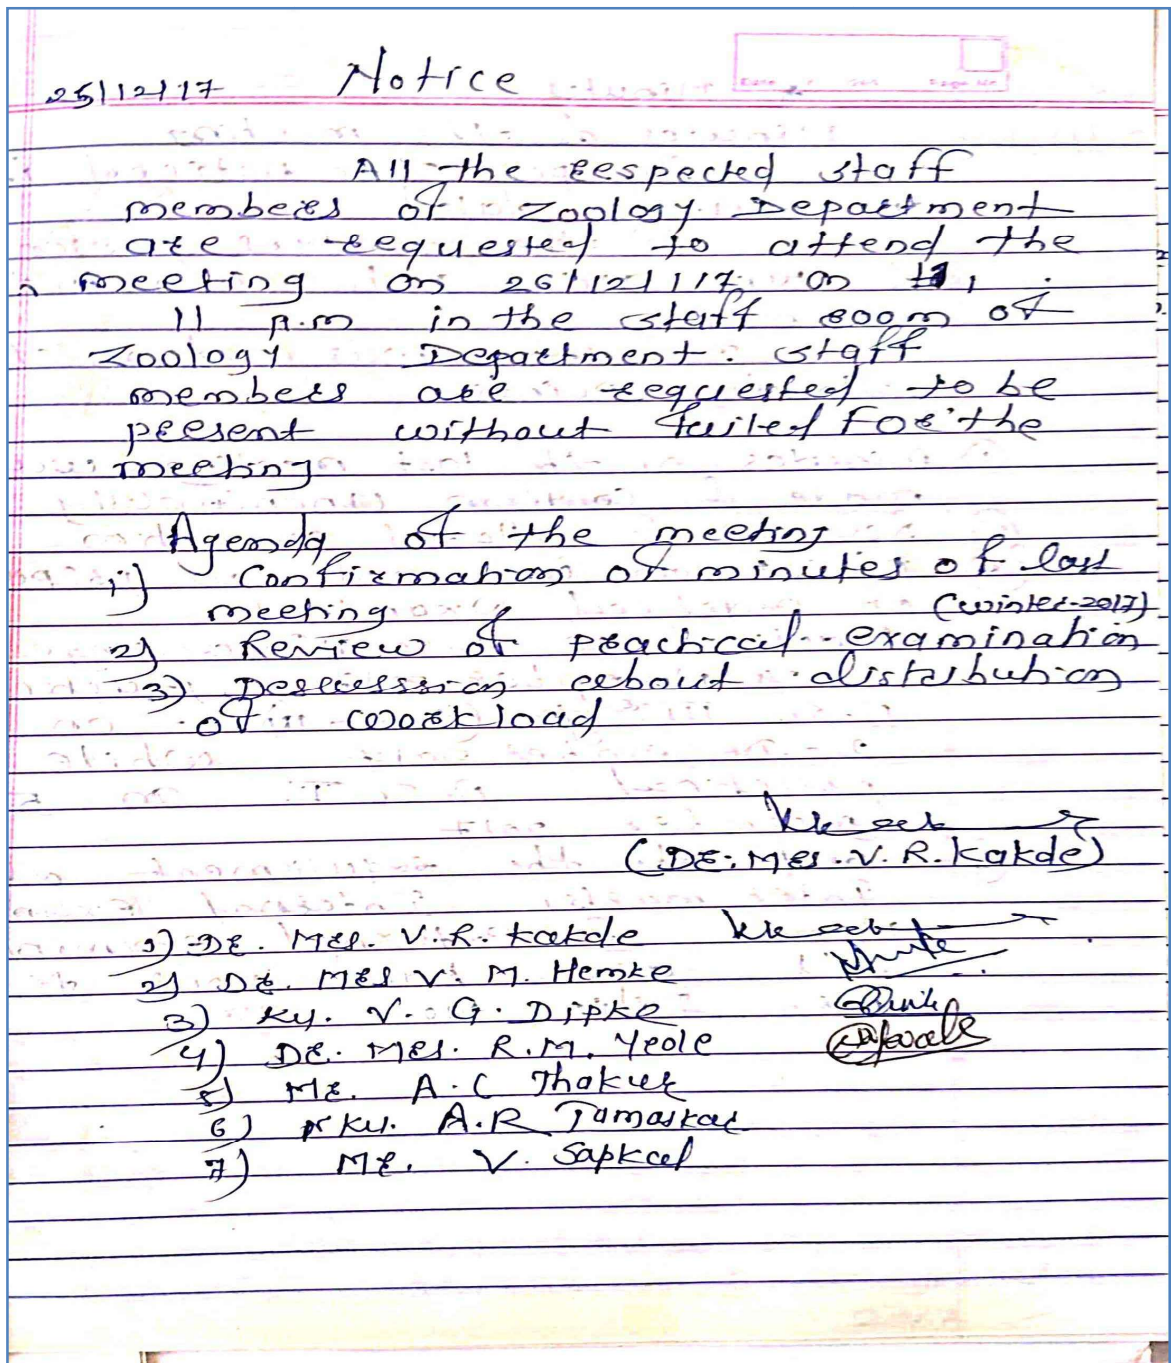 25/12/17 Notice
All the respected staff
members of Zoology Department
are requested to attend the
meeting on 26/12/17 on
11 p.m in the staff room of
Zoology Department. Staff
members are requested to be
present without failed For the
meeting
Agenda of the meeting
1) Confirmation of minutes of last
meeting
(Winter-2017)
2) Review of practical examination
3) Descussion about distribution
of workload
(Dr. Mrs. V. R. Kakde)
1) Dr. Mrs. V. R. Kakde
2) Dr. Mrs V. M. Hemke
3) Ky. V. G. Dipke
4) Dr. Mrs. R. M. Yeole
5) Mr. A. C Thakur
6) Ku. A. R Tamaskar
7) Mr. V. Sapkal